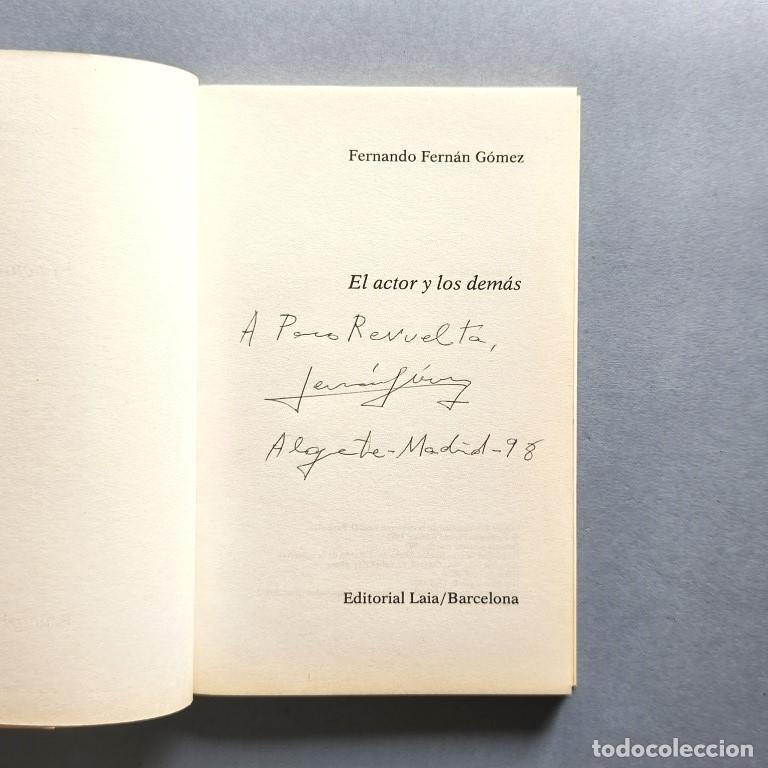 Fernando Fernán Gómez
El actor y los demás
A Paco Revuelta,
Fernán Gómez
Algete-Madrid-98
Editorial Laia/Barcelona
todocoleccion